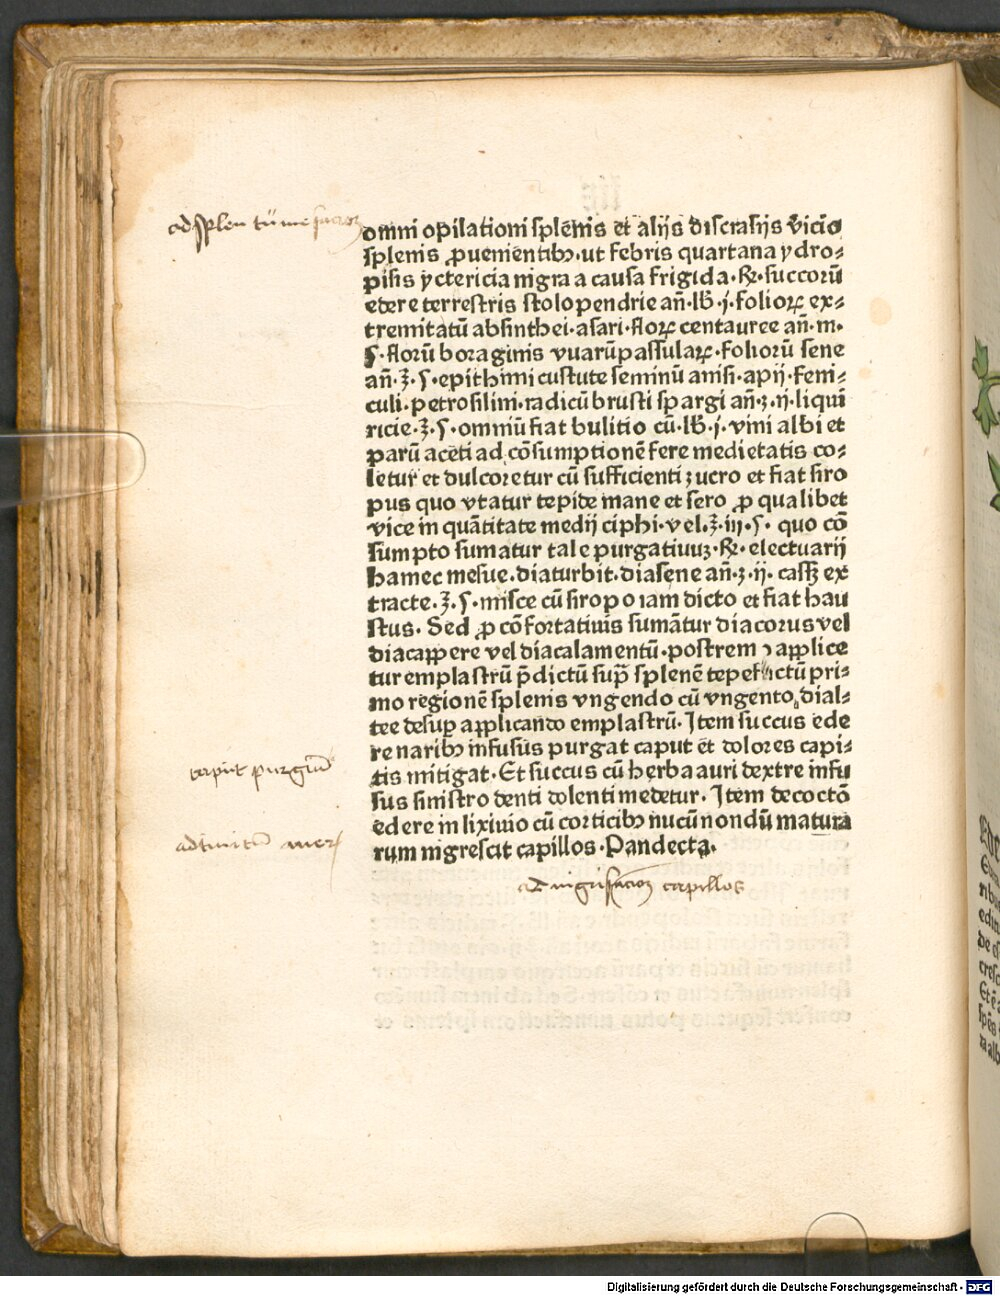 ad splen tume
omni opilationi splenis et alijs discrasijs vicijs
splenis ꝓuenientibꝰ·ut febris quartana ydro⸗
pisis yctericia nigra a causa frigida·℞·succorū
edere terrestris stolopendrie an̄·lb̄·j·folioꝝ ex⸗
tremitatū absinthei·asari·floꝝ centauree an̄·m·
ſ·florū boraginis vuarū passulaꝝ·foliorū sene
an̄·ʒ·ſ·epithimi cuscute seminū anisi·apij·feni⸗
culi·petrosilini·radicū brusti spargi an̄·ʒ·ij·liquiri
ricie·ʒ·ſ·omniū fiat bulitio cū·lb̄·j·vini albi et
parū aceti ad cōsumptionē fere medietatis co⸗
letur et dulcoretur cū sufficienti zucro et fiat siro
pus quo vtatur tepide mane et sero ꝓ qualibet
vice in quātitate medij ciphi·vel·ʒ·iij·ſ· quo cō
sumpto sumatur tale purgatiuuꝫ·℞·electuarij
hamec mesue·diaturbit·diasene an̄·ʒ·ij· cassꝫ ex
tracte·ʒ·ſ·misce cū siropo iam dicto et fiat hau
stus· Sed ꝓ cōfortatiuis sumātur diacorus vel
diacappere vel diacalamentū·postremo applice
tur emplastrū p̄dictū sup̄ splenē tepefactū pri⸗
mo regionē splenis vngendo cū vngento dial⸗
tee desuꝑ applicando emplastrū· Item succus ede
re naribꝰ infusus purgat caput et dolores capi⸗
tis mitigat· Et succus cū herba auri dextre infu
sus sinistro denti dolenti medetur· Item decoctō
caput purgand
edere in lixiuio cū corticibꝰ nucū nondū matura
rum nigrescit capillos·Pandecta·
capillos
Digitalisierung gefördert durch die Deutsche Forschungsgemeinschaft - DFG